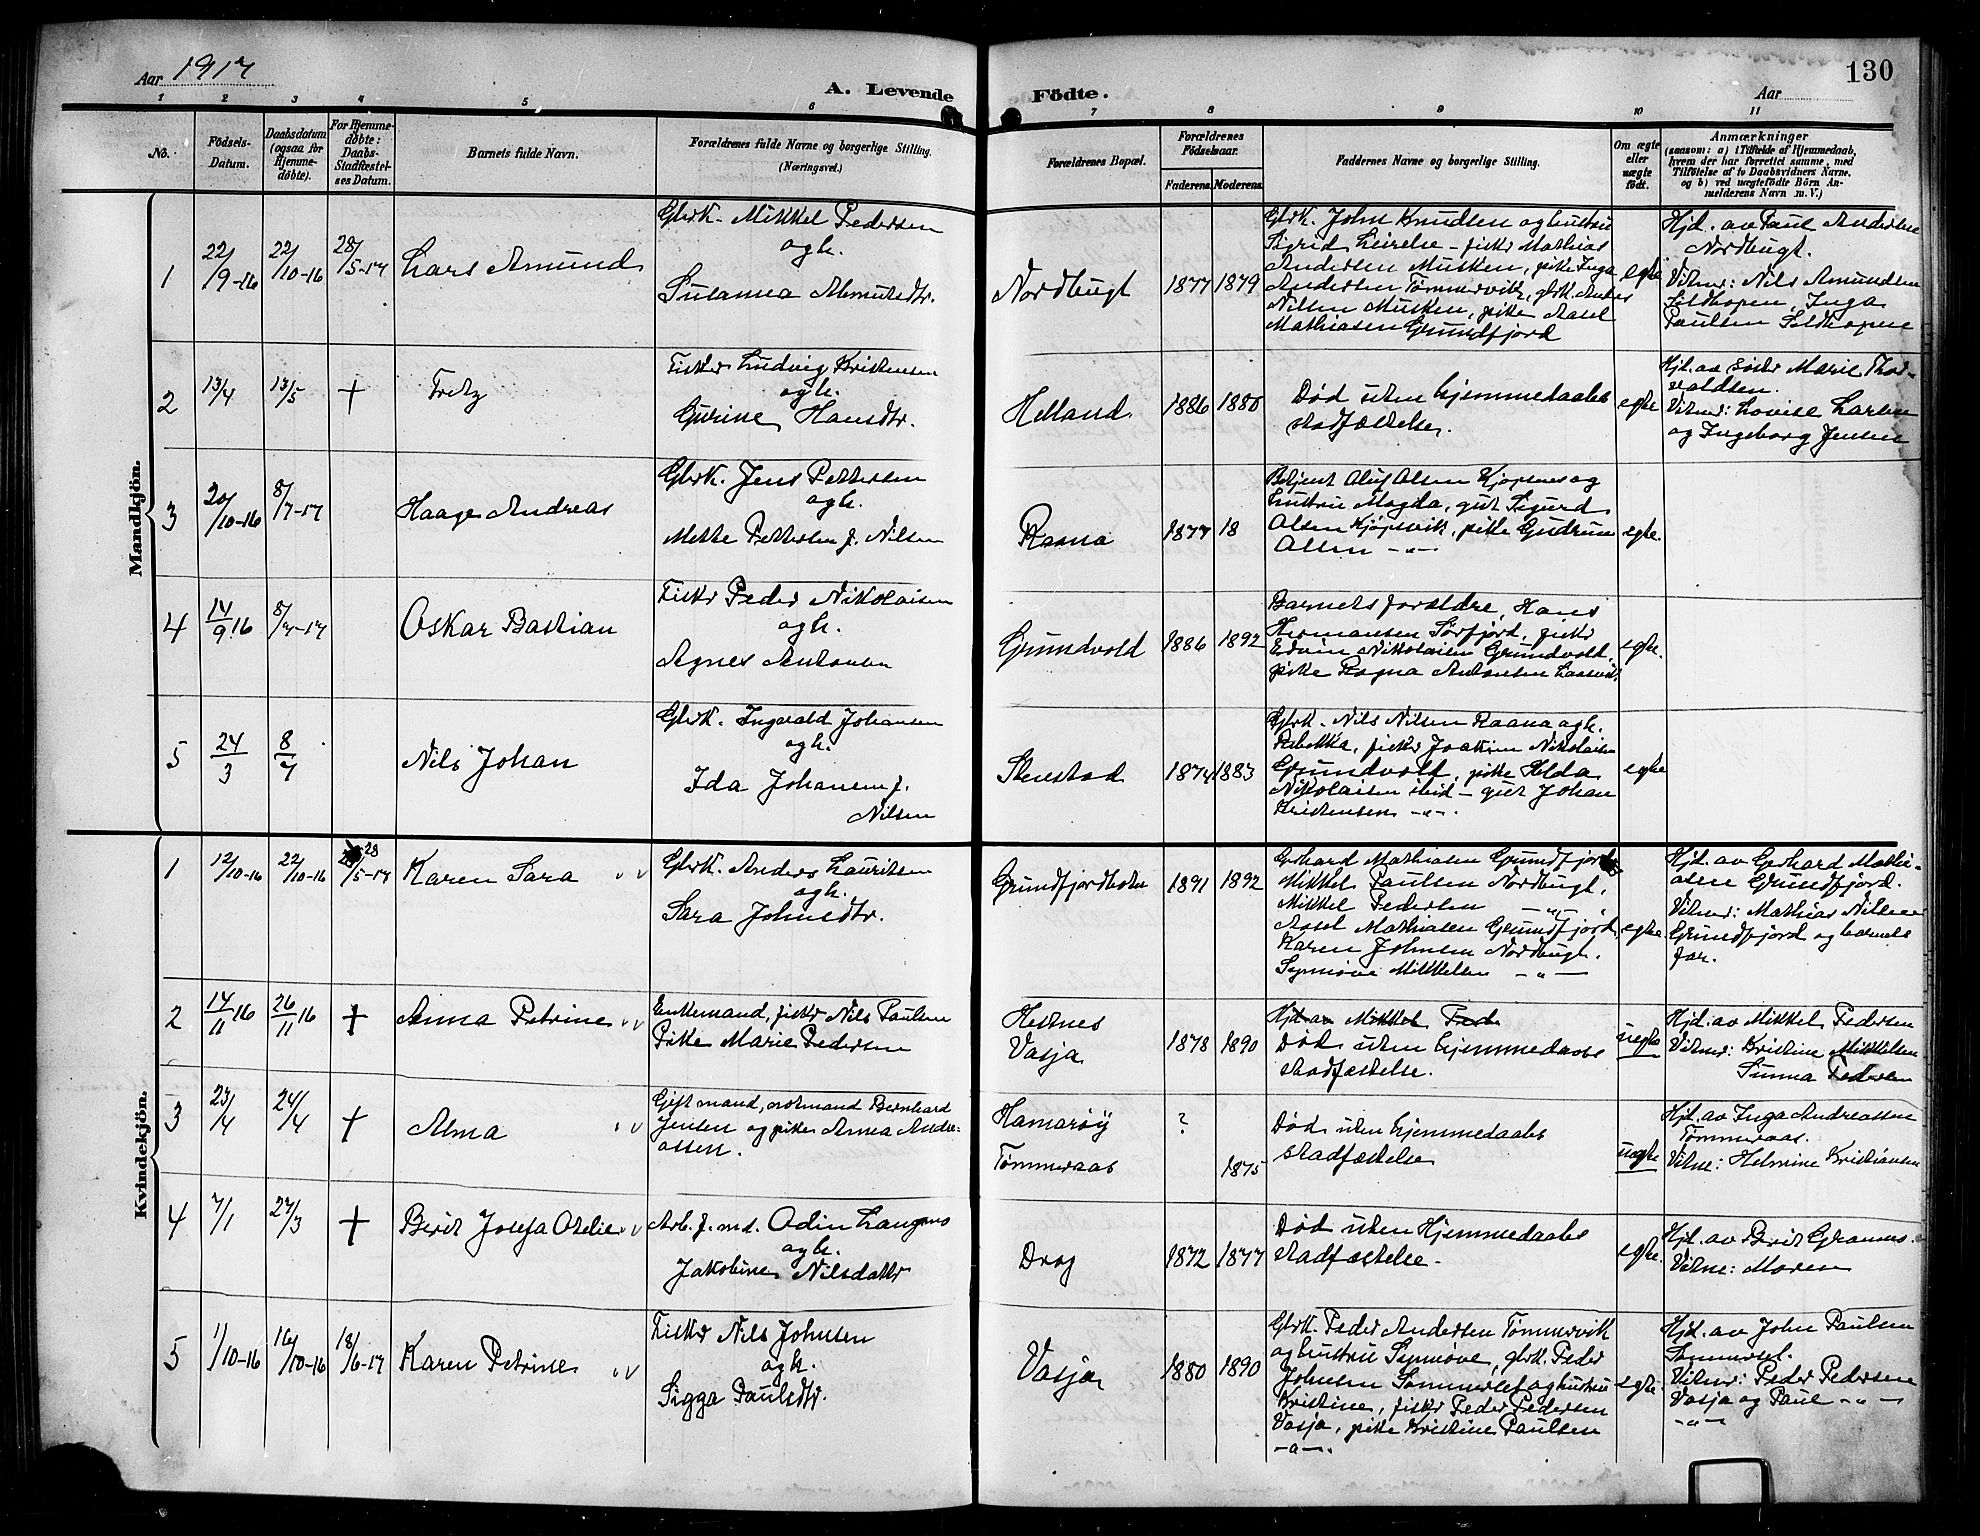 130
Aar 1917
A. Levende Födte.
Aar
1 2 3 4 5 6 7 8 9 10 11
No.
Födsels-
Datum.
Daabsdatum
(ogsaa for
Hjemme-
döbte).
For Hjemme-
döbte:
Daabs-
Stadfæstel-
ses Datum.
Barnets fulde Navn.
Forældrenes fulde Navne og borgerlige Stilling.
(Næringsvei.)
Forældrenes Bopæl.
Forældrenes
Födselsaar.
Faderens. Moderens.
Faddernes Navne og borgerlige Stilling.
Om ægte
eller
uægte
födt.
Anmærkninger
(saasom: a) i Tilfælde af Hjemmedaab,
hvem der har forrettet samme, med
Tilföielse af to Daabsvidners Navne,
og b) ved uægtefödte Börn An-
melderens Navn m. V.)
Mandkjön.
1
22/9-16
22/10-16
28/5-17
Lars Amund
Gbrk. Mikkel Pedersen
og h.
Susanna Amundsdtr.
Nordbugt
1877 1879
Gbrk. John Knudsen og hustru
Sigrid Leirelse - fisker Mathias
Andersen Musken, pike Inga
Andersen Tømmervik, gbrk. Anders
Nilsen Musken, pike Aasel
Mathiasen Grundfjord
egte
Hjd. av Paul Andersen
Nordbugt.
Vitner: Nils Amundsen
Sildhopen, Inga
Paulsen Sildhopen
2
13/4
13/5
+
Fritz
Fisker Ludvig Kristensen
og h.
Gurine Hansdtr.
Helland
1886 1880
Død uten hjemmedaabs
stadfæstelse.
egte
Hjd. av søster Marie Thor-
valdsen.
Vitner: Lovise Larsen
og Ingeborg Jensen
3
20/10-16
8/7-17
Haage Andreas
Gbrk. Jens Pettersen
og h.
Mette Pettersen f. Nilsen
Raana
1877 18
Betjent Oluf Olsen Kjøpsnes og
hustru Magda, gut Sigurd
Olsen Kjøpsvik, pike Gudrun
Olsen -"-
egte.
4
14/9 16
8/7-17
Oskar Bastian
Fisker Peder Nikolaisen
og h.
Agnes Antonsen
Grundvold
1886 1892
Barnets forældre, Hans
Hermansen Sørfjord, fisker
Edvin Nikolaisen Grundvold,
pike Ragna Antonsen
egte.
5
24/3
8/7
Nils Johan
Gbrk. Ingvald Johansen
og h.
Ida Johansen f.
Nilsen
Stenstad
1874 1883
Gbrk. Nils Nilsen Raana og h.
Rebekka, fisker Joakim Nikolaisen
Grundvold, pike Helda
Nikolaisen sted - gut Johan
Kristensen -"-.
egte
Kvindekjön.
1
12/10-16
22/10-16
28/5-17
Karen Sara
Gbrk. Anders Lauritsen
og h.
Sara Johnsdtr.
Grundfjordbotn
1891 1892
Gerhard Mathiasen Grundfjord
Mikkel Paulsen Nordbugt,
Mikkel Pedersen -"-
Aasel Mathiasen Grundfjord,
Karen Johnsen Nordbugt.
Synnøve Mikkelsen -"-
egte
Hjd. av Gerhard Mathi-
asen Grundfjord.
Vitner: Mathias Nilsen
Grundfjord og barnets
far.
2
17/11 16
26/11 16
+
Anna Petrine
Enkemand, fisker Nils Paulsen
Pike Marie Pedersen
Hestnes
Vasja
1878 1890
Hjd. av Mikkel Peder
Død uten hjemmedaabs
stadfæstelse.
uegte
Hjd. av Mikkel Pedersen
Vitner: Kristine Mikkelsen
Sunna Pedersen
3
23/4
24/4
+
Alma
Gift mand, notmand Bernhard
Jensen og pike Anna Andre-
assen.
Hamarøy
Tømmeraas
?
1875
Død uten hjemmedaabs
stadfæstelse
uegte
Hjd. av Inga Andreassen
Tømmeraas.
Vitne: Helmine Kristiansen
4
7/1
27/3
+
Berit Josefa Otelie
Arb. f. m.d. Odin Langmo
og h.
Jakobine Nilsdatter
Drag
1872 1877
Død uten Hjemmedaabs
stadfæstelse.
egte.
Hjd. av Berit Gramnes.
Vitne: Moren
5
1/10-16
16/10-16
18/6-17
Karen Petrine
Fisker Nils Johnsen
og h.
Sigga Paulsdtr.
Vasja
1880 1890
Gbrk. Peder Andersen Tømmervik
og hustru Synnøve, gbrk. Peder
Johnsen Sommerset og hustru
Kristine, fisker Peder Pedersen
Vasja, pike Kristine Paulsen
-"-.
egte.
Hjd. av John Paulsen
Sommerset.
Vitner: Peder Pedersen
Vasja og Paul -"-
-"-